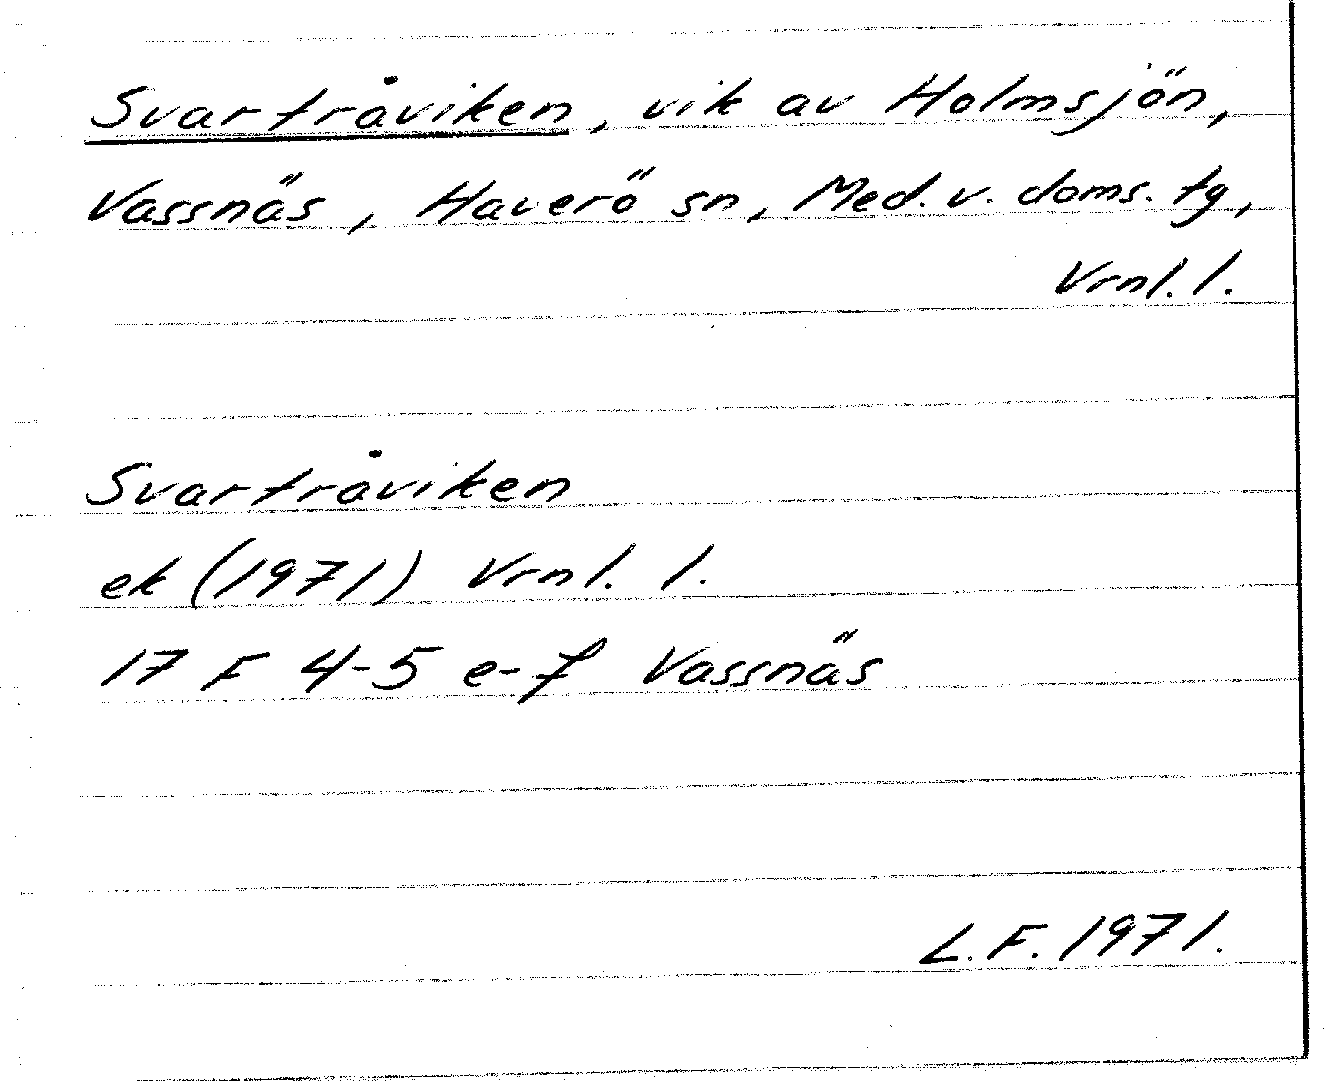 Svartråviken, vik av Holmsjön,
Vassnäs, Haverö sn, Med. v. doms. tg,
Vrnl. l.
Svartråviken
ek (1971) Vrnl. l.
17 F 4-5 e-f Vassnäs
L.F. 1971.